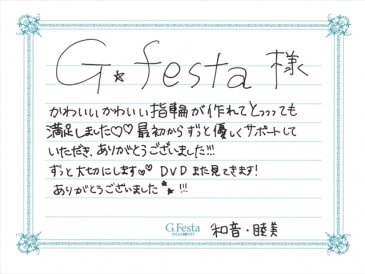 G★festa 様
かわいいかわいい指輪が作れてとっっっても
満足しました♡♡ 最初からずっと優しくサポートして
いただき、ありがとうございました!!!
ずっと大切にします♡♡ DVDまた見てきます!
ありがとうございました★彡!!!
G.Festa
和音・睦美